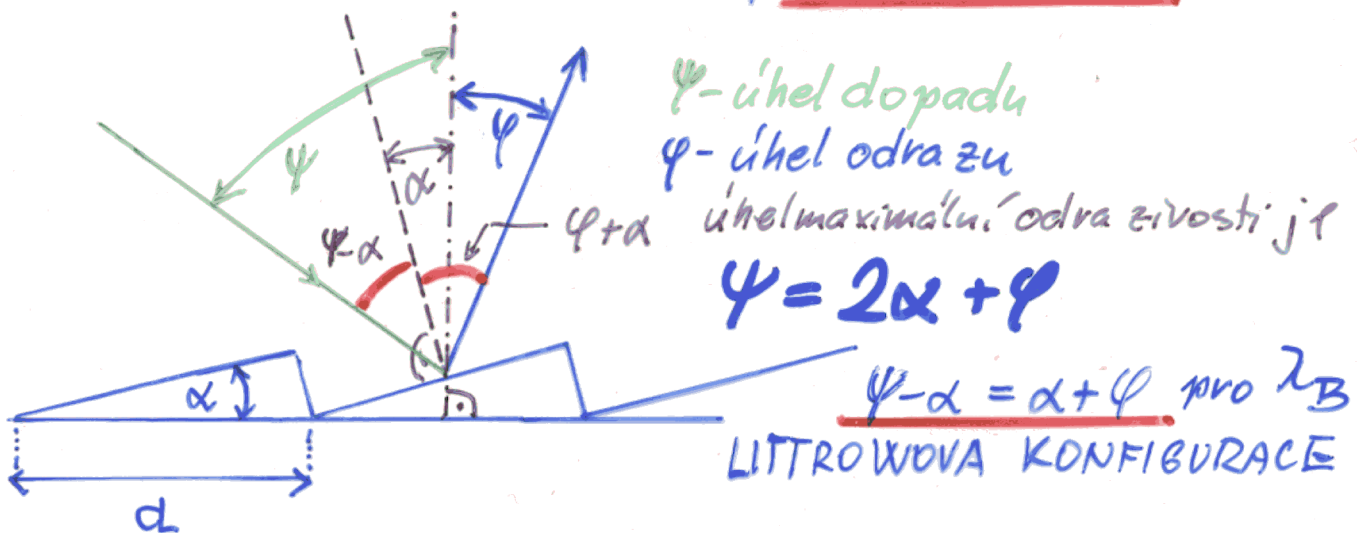 ψ-úhel dopadu
φ-úhel odrazu
úhel maximální odrazivosti je
ψ = 2α + φ
ψ-α = α+φ pro λB
LITTROWOVA KONFIGURACE
ψ
α
φ
ψ-α
φ+α
α
d